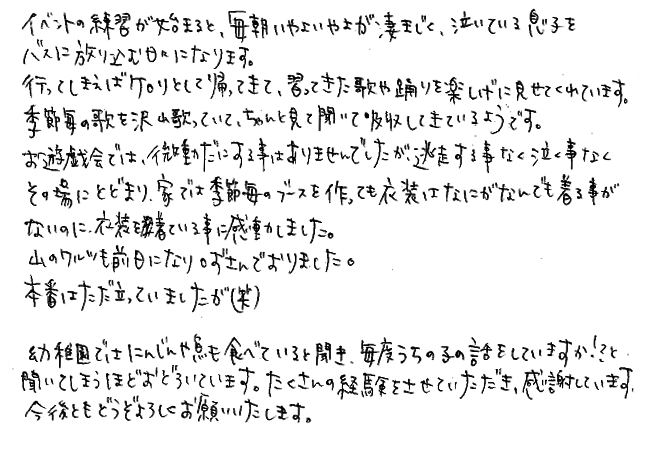 イベントの練習が始まると、毎朝いやよいやよが凄まじく、泣いている息子を
バスに放り込む日々になります。
行ってしまえばケロリとして帰ってきて、習ってきた歌や踊りを楽しげに見せてくれています。
季節毎の歌も沢山歌っていて、ちゃんと見て聞いて吸収してきているようです。
お遊戯会では、微動だにする事はありませんでしたが、逃走する事なく泣く事なく
その場にとどまり、家では季節毎のブースを作っても衣装はなにがなんでも着る事が
ないのに、衣装を着ている事に感動しました。
山のワルツも前日になり口ずさんでおりました。
本番はただ立っていましたが(笑)
幼稚園ではにんじんや魚も食べていると聞き、毎度うちの子の話をしていますか!?と
聞いてしまうほどおどろいています。たくさんの経験をさせていただき、感謝しています。
今後ともどうぞよろしくお願いいたします。